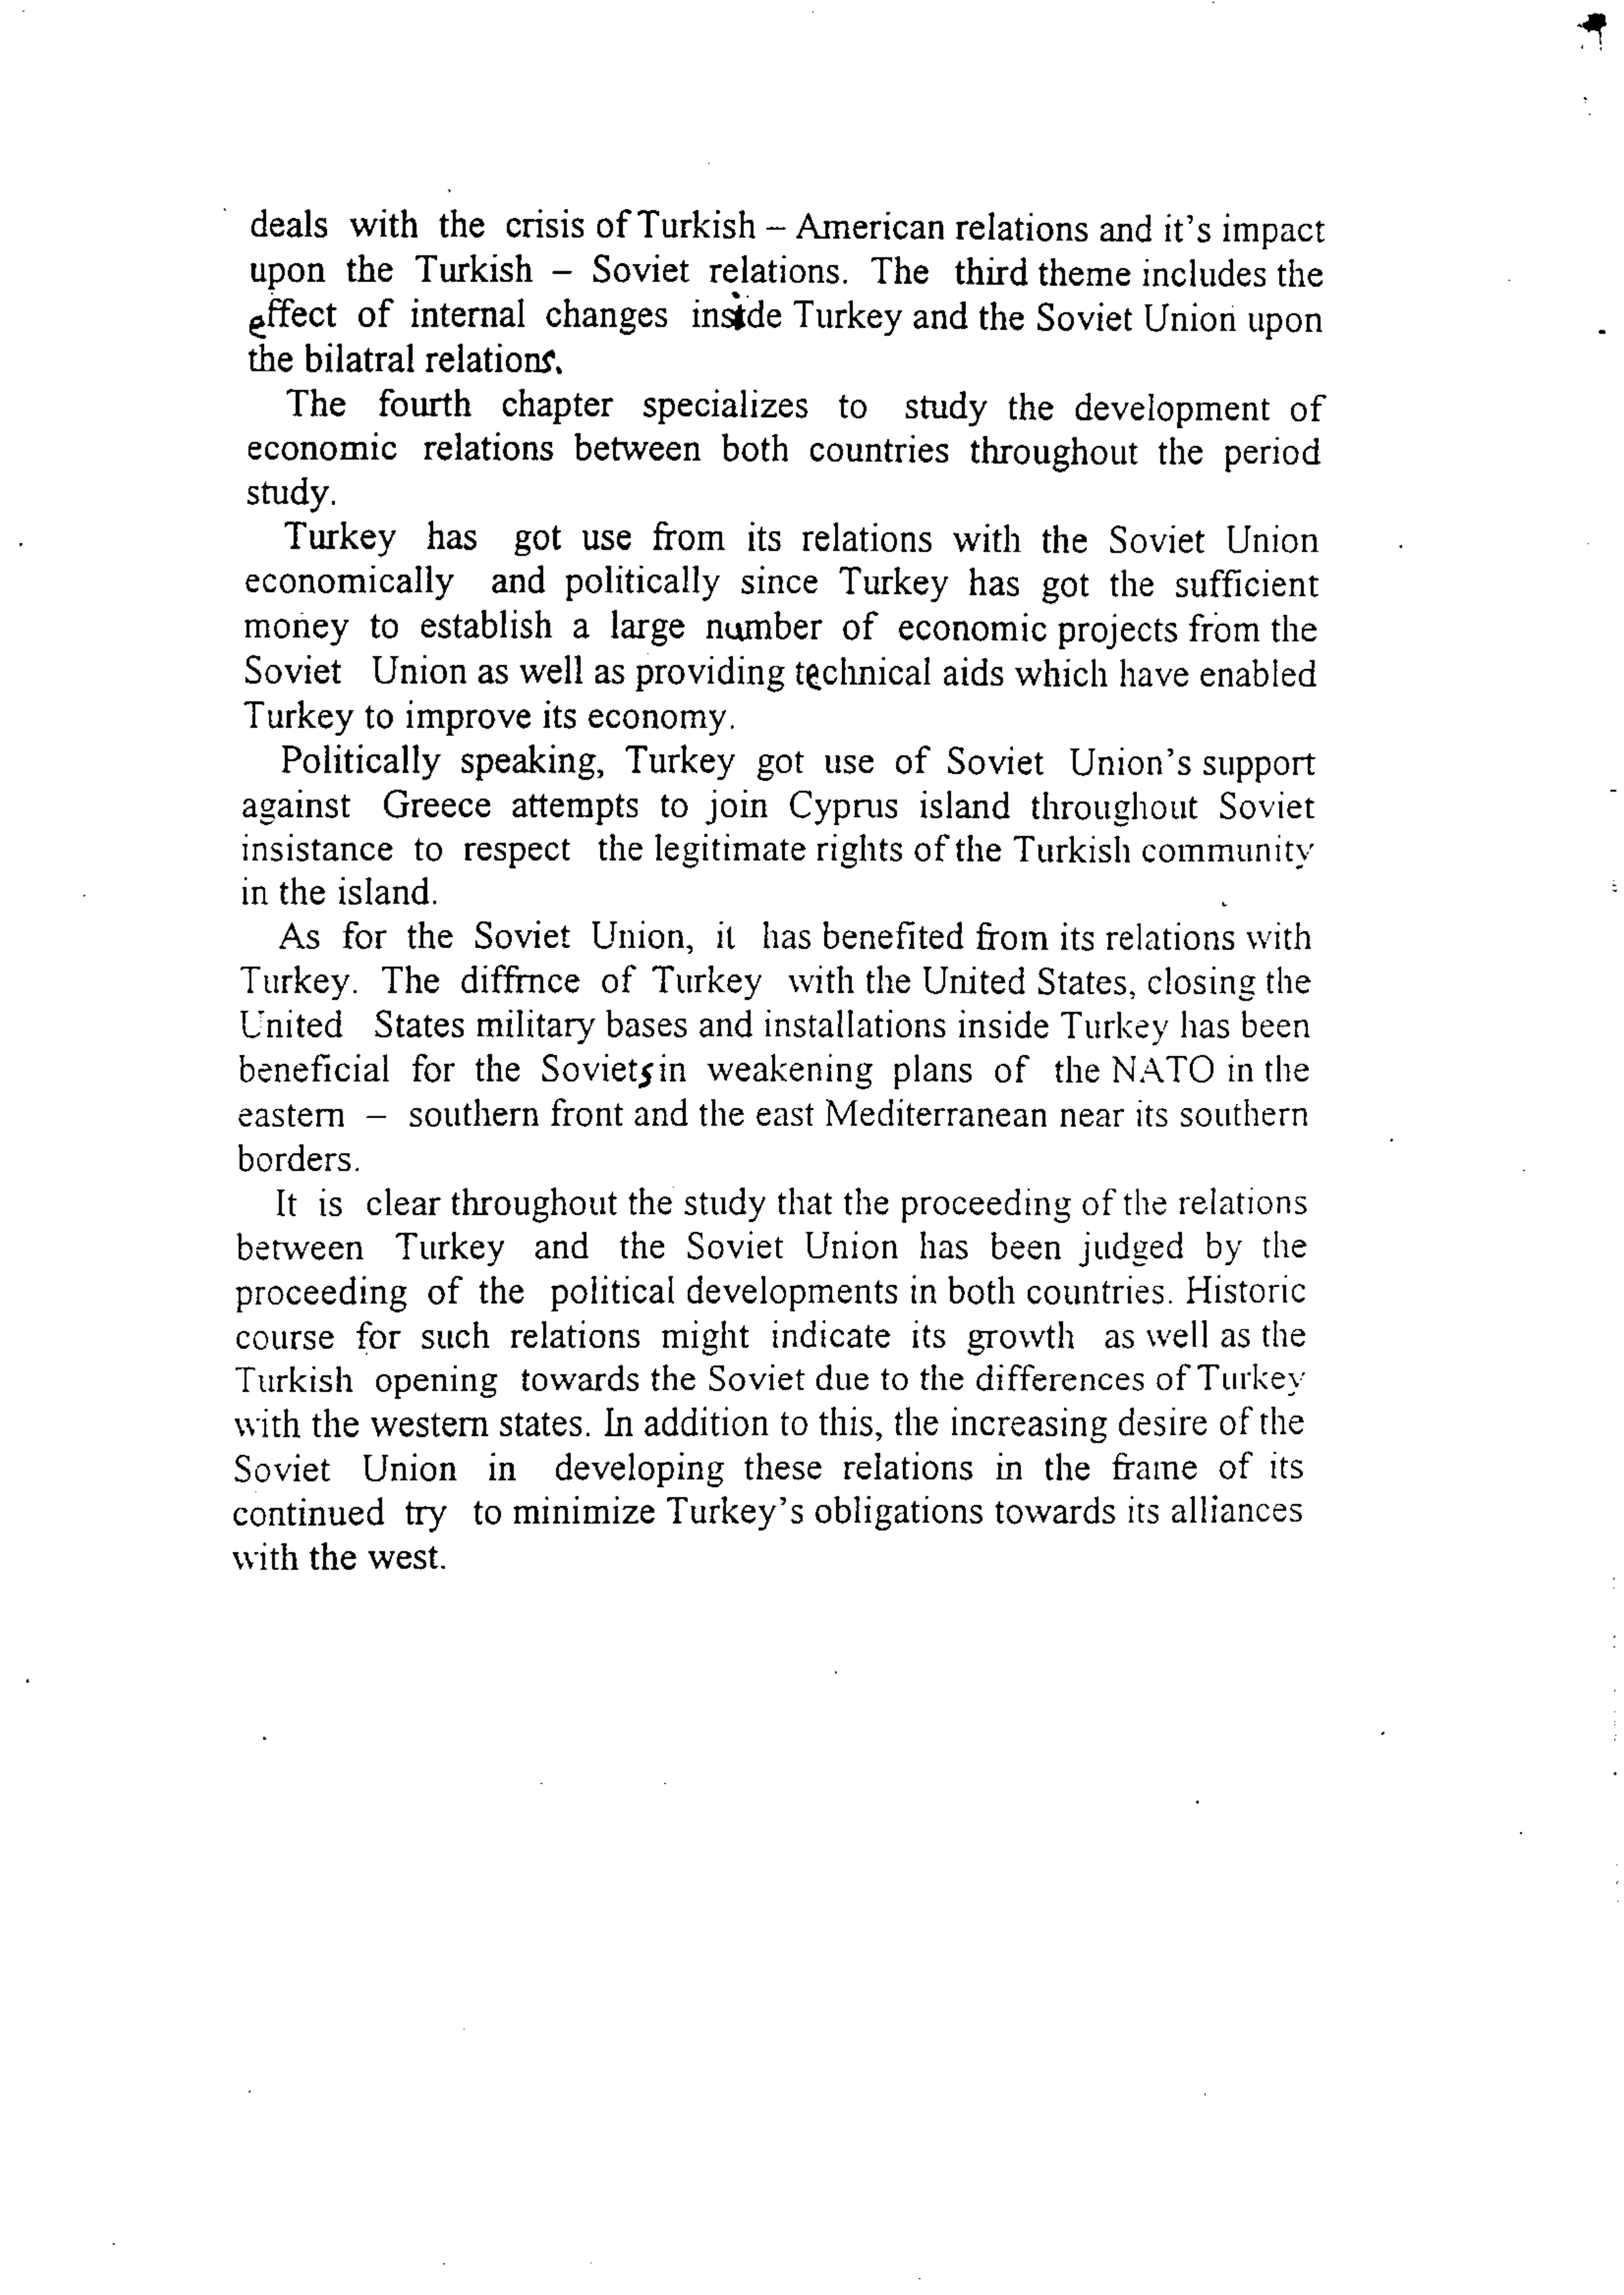 deals with the crisis of Turkish – American relations and it's impact
upon the Turkish – Soviet relations. The third theme includes the
effect of internal changes inside Turkey and the Soviet Union upon
the bilatral relations.
The fourth chapter specializes to study the development of
economic relations between both countries throughout the period
study.
Turkey has got use from its relations with the Soviet Union
economically and politically since Turkey has got the sufficient
money to establish a large number of economic projects from the
Soviet Union as well as providing technical aids which have enabled
Turkey to improve its economy.
Politically speaking, Turkey got use of Soviet Union's support
against Greece attempts to join Cyprus island throughout Soviet
insistance to respect the legitimate rights of the Turkish community
in the island.
As for the Soviet Union, it has benefited from its relations with
Turkey. The diffrnce of Turkey with the United States, closing the
United States military bases and installations inside Turkey has been
beneficial for the Soviets in weakening plans of the NATO in the
eastern – southern front and the east Mediterranean near its southern
borders.
It is clear throughout the study that the proceeding of the relations
between Turkey and the Soviet Union has been judged by the
proceeding of the political developments in both countries. Historic
course for such relations might indicate its growth as well as the
Turkish opening towards the Soviet due to the differences of Turkey
with the western states. In addition to this, the increasing desire of the
Soviet Union in developing these relations in the frame of its
continued try to minimize Turkey's obligations towards its alliances
with the west.